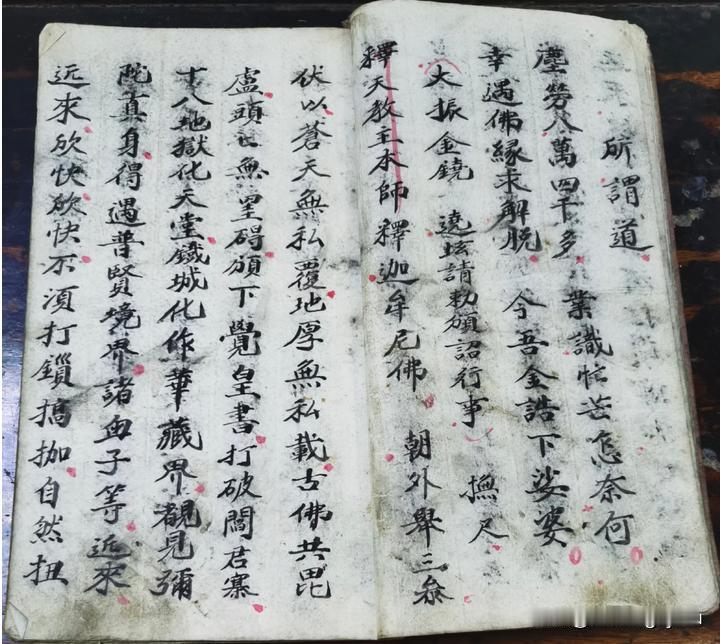 所謂道
塵勞八萬四千多 業識忙茫怎奈何
幸遇佛緣求解脫 今吾金誥下娑婆
大振金鐃 遶坛請勅頒詔行事 撫尺
釋天教主本師釋迦牟尼佛 朝外舉三叅
伏以蒼天無私覆地厚無私載古佛共毘
盧頭上無罣碍頒下覺皇書打破閻君寨
十八地獄化天堂鐵城化作華藏界覩見彌
陀真身得遇普賢境界諸血子等近來
近來欣快欣快不須打鎖搞枷自然扭